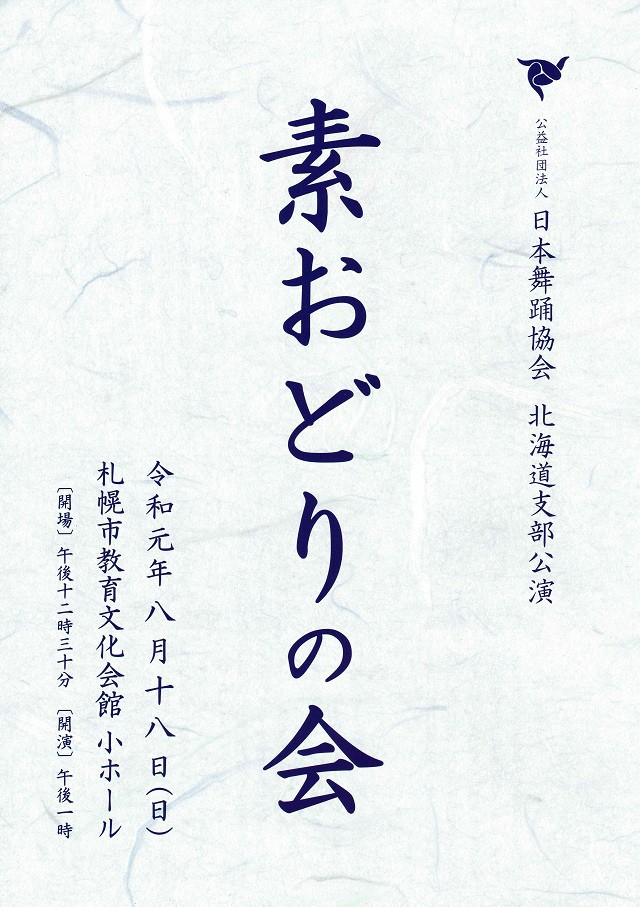 公益社団法人 日本舞踊協会 北海道支部公演
素おどりの会
令和元年八月十八日(日)
札幌市教育文化会館 小ホール
〔開場〕午後十二時三十分 〔開演〕午後一時